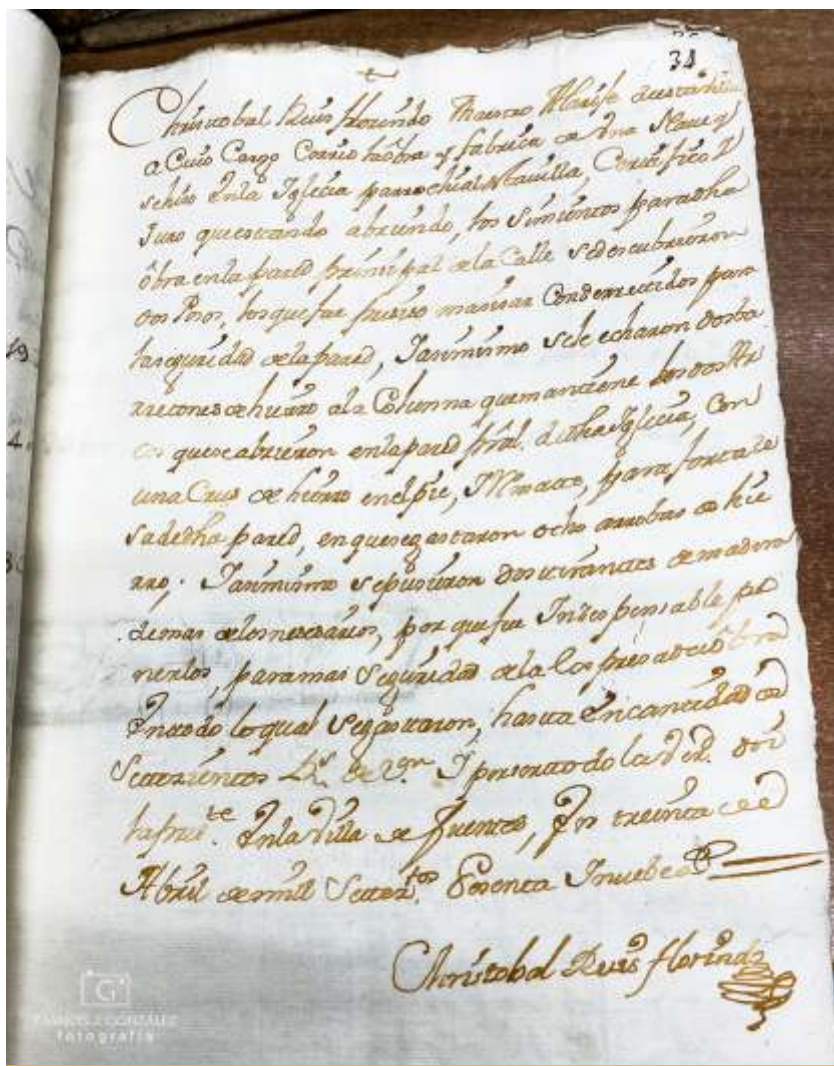 34
Christobal Ruis florindo Maestro Alarife de esta villa
a Cuio Cargo Corrio la óbra y fabrica de Una Nave q
se hizo En la Iglecia parrochial de esta villa, Certifico I
Juro que estando abriendo, los Simientos para dha
óbra en la pared prinsipal de la Calle se descubrieron
dos Posos, los que fue preciso masisar Con derretidos para
la seguridad de la pared, I asimismo se le echaron dos ba
rretones de hierro a la Colunna que mantiene los dos Ar
cos que se abrieron en la pared pral. de dha Iglecia, Con
una Crus de hierro en el pie, para fortale
sa de dha pared, en que se gastaron ocho arrobas de hie
rro; I asimismo se pusieron dos tirantes de madera
demas de los nesesarios, por que fue Indespensable po
nerlos, para mas Seguridad de la óbra
En todo lo qual Se gastaron, hasta En cantidad de
Setesientos Rs. de Von. I por ser todo la Verd. doi
la preste. En la Villa de fuentes, En treinta de
Abril de mil Seter.tos Sesenta I nuebe as
Christobal Ruis florindo
G
FRANCIS J. GONZÁLEZ
fotografía